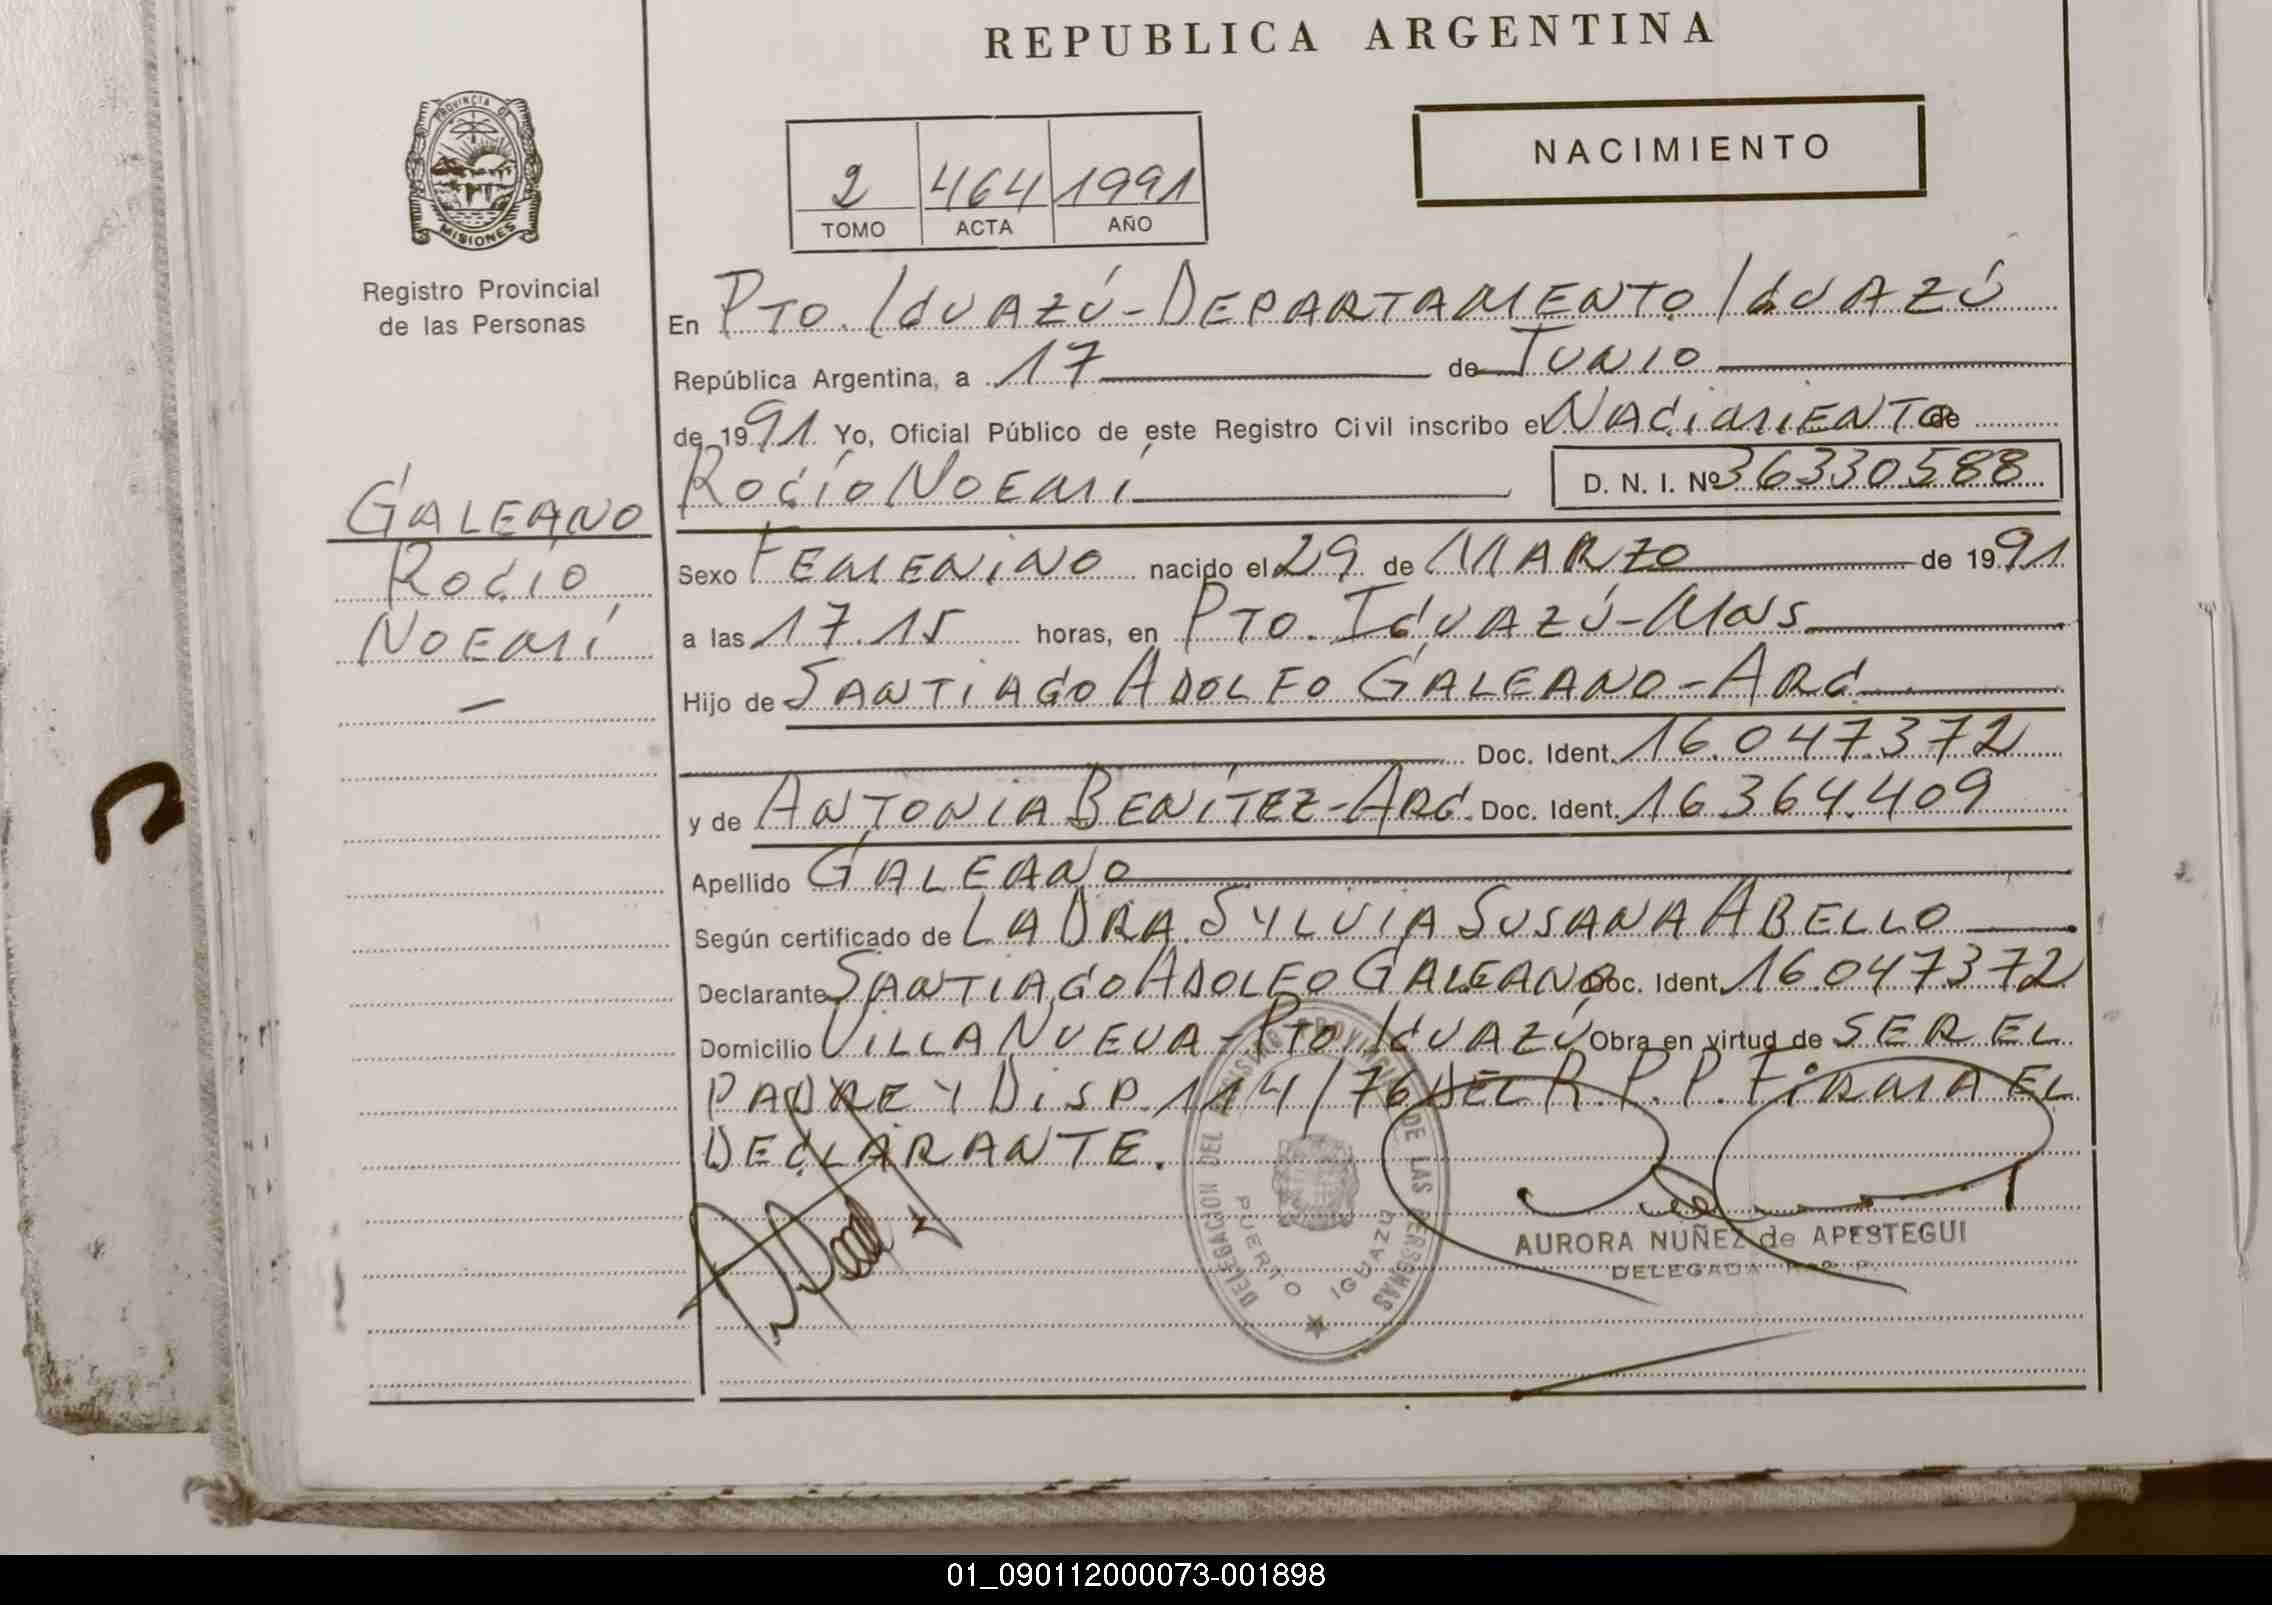 REPUBLICA ARGENTINA
PROVINCIA DE
MISIONES
Registro Provincial
de las Personas
NACIMIENTO
2 464 1991
TOMO ACTA AÑO
En PTO. IGUAZÚ-DEPARTAMENTO IGUAZÚ
República Argentina, a 17 de JUNIO
de 1991 Yo, Oficial Público de este Registro Civil inscribo el NACIMIENTO de
ROCÍO NOEMÍ D. N. I. Nº 36330588
GALEANO
ROCÍO
NOEMÍ
Sexo FEMENINO nacido el 29 de MARZO de 1991
a las 17.15 horas, en PTO. IGUAZÚ-MNS
Hijo de SANTIAGO ADOLFO GALEANO-ARG.
Doc. Ident. 16.047.372
y de ANTONIA BENÍTEZ-ARG. Doc. Ident. 16364.409
Apellido GALEANO
Según certificado de LA DRA. SYLVIA SUSANA ABELLO
Declarante SANTIAGO ADOLFO GALEANO Doc. Ident. 16.047372
Domicilio VILLA NUEVA-PTO. IGUAZÚ Obra en virtud de SER EL
PADRE Y DISP. 114/76 DEL R.P.P. FIRMA EL
DECLARANTE.
DELEGACION DEL REGISTRO PROVINCIAL DE LAS PERSONAS
PUERTO IGUAZU
AURORA NUÑEZ de APESTEGUI
DELEGADA
01_090112000073-001898